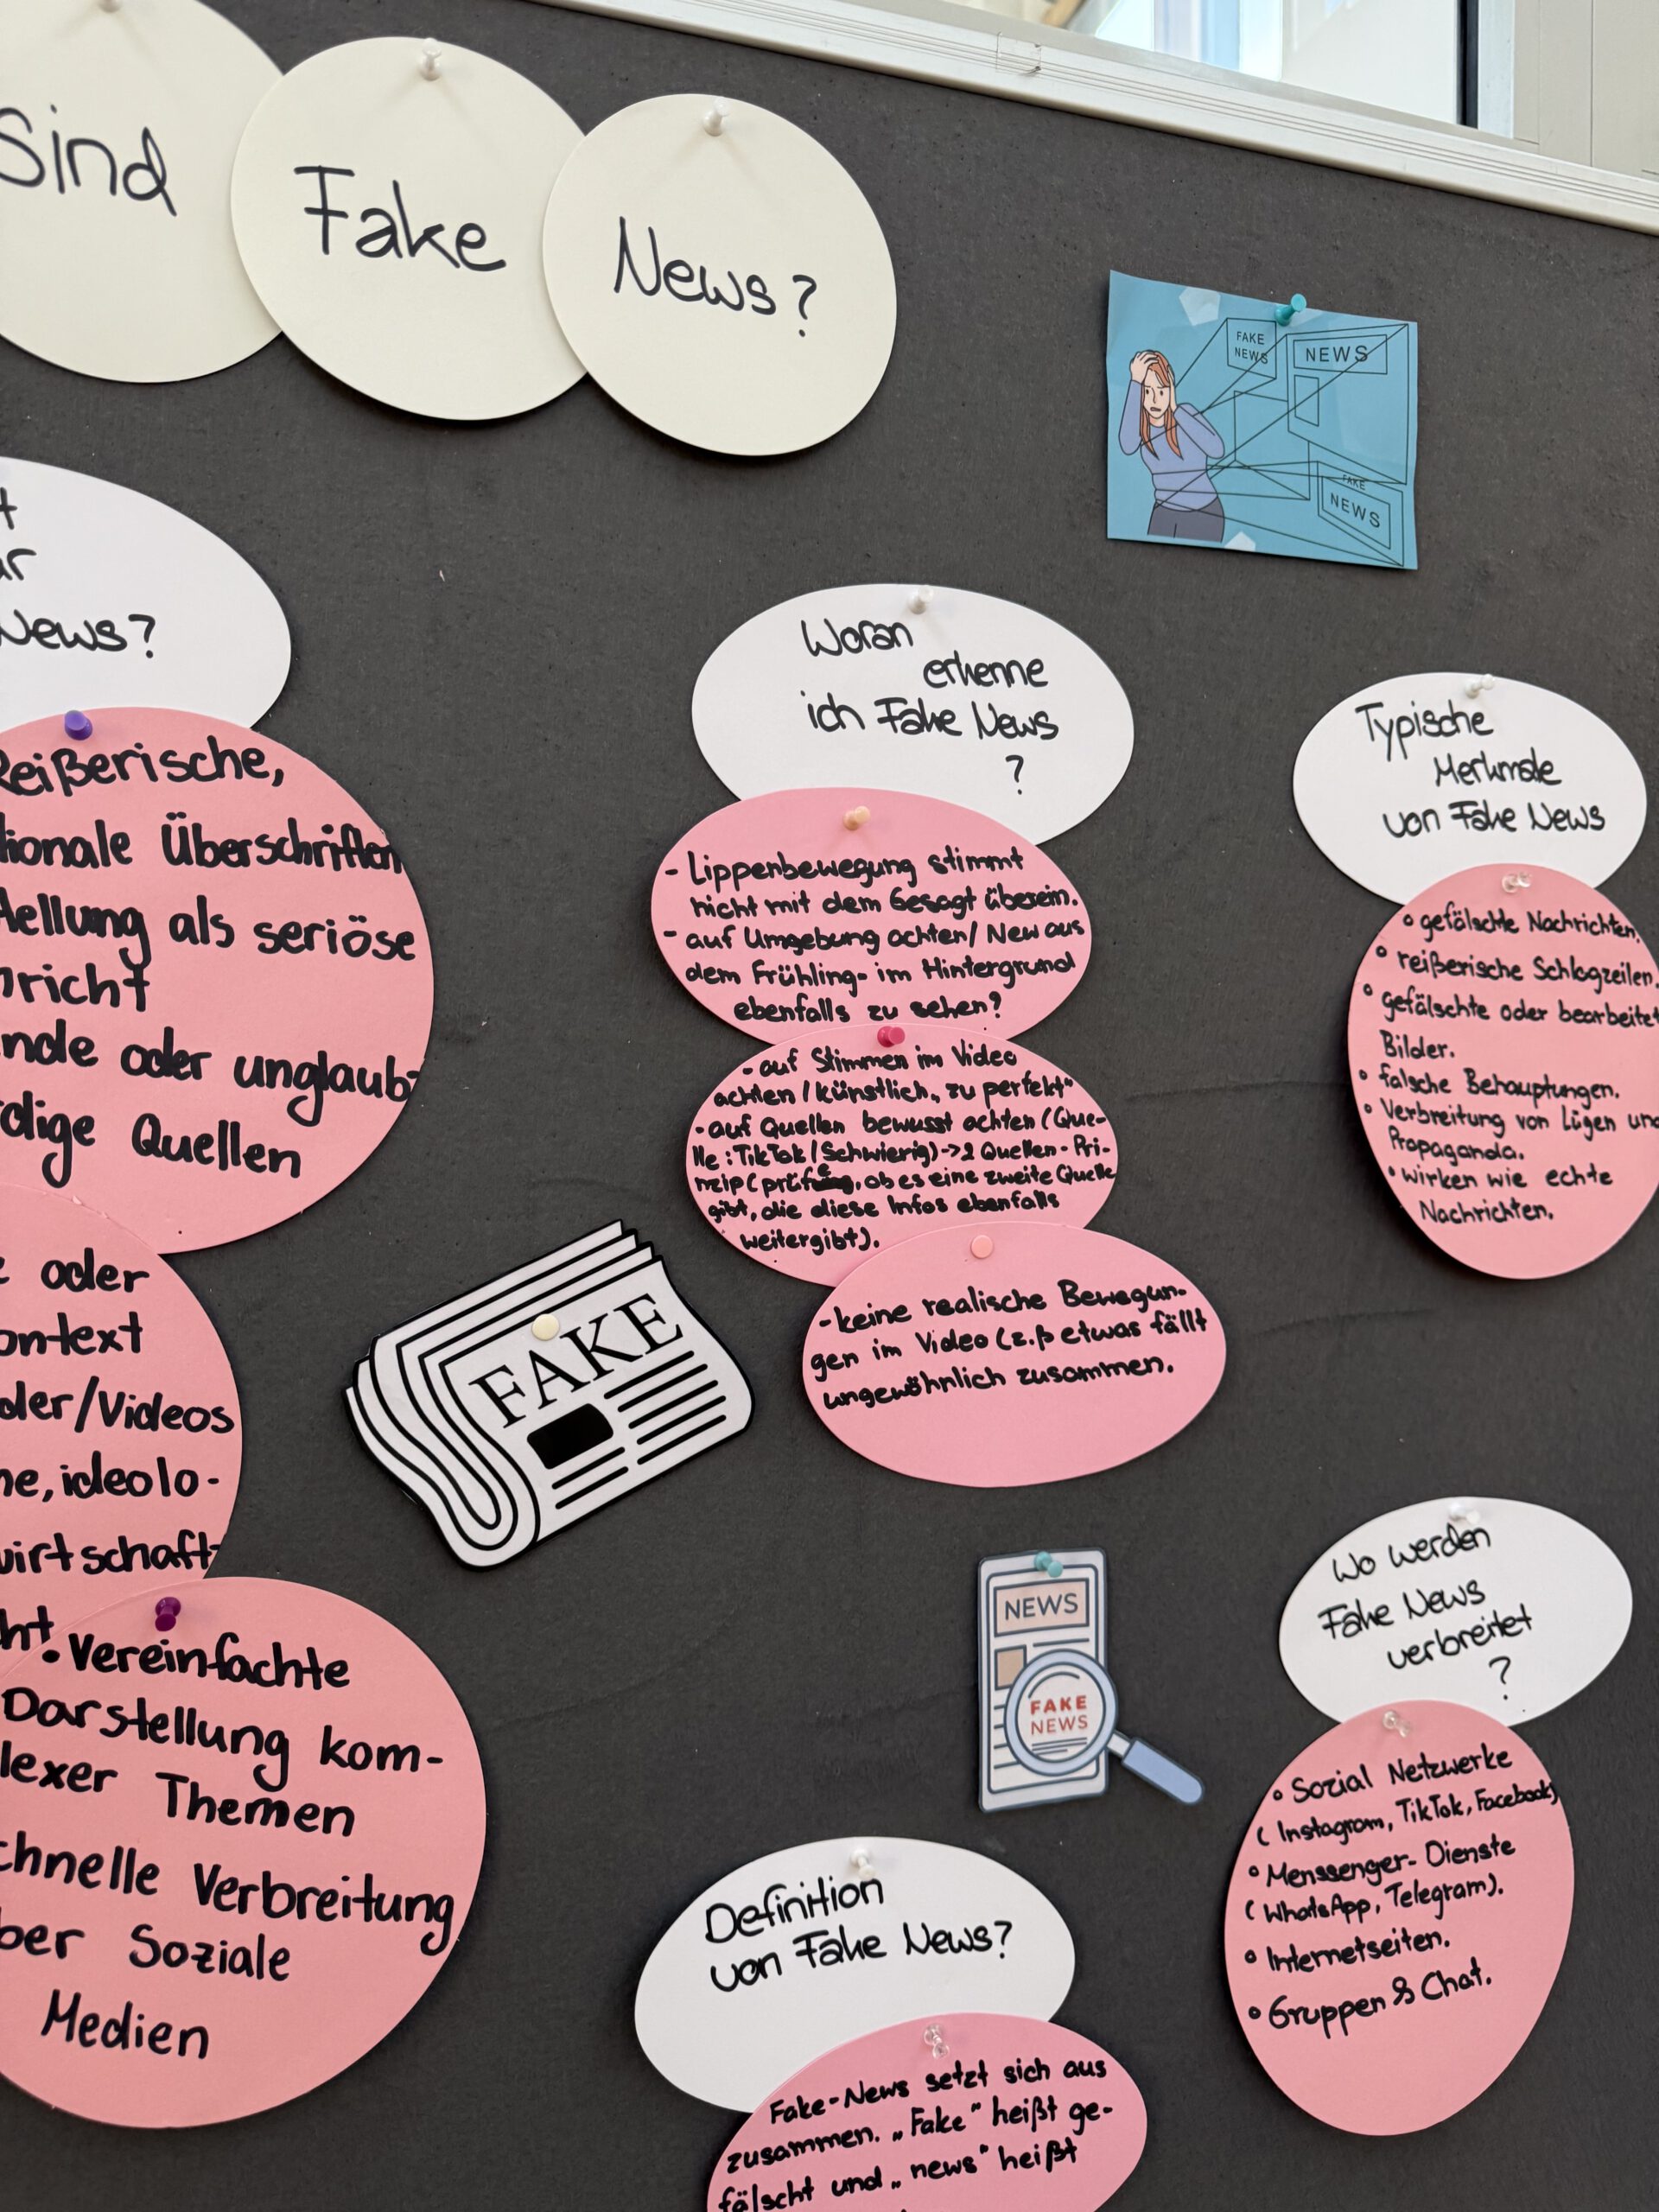 Sind
Fake
News?
FAKE
NEWS
NEWS
FAKE
NEWS
News?
Reißerische,
Überschriften
als seriöse
oder unglaub-
Quellen
oder
/Videos
ideolo-
Vereinfachte
Darstellung kom-
Themen
Verbreitung
Soziale
Medien
Woran
erkenne
ich Fake News
?
- Lippenbewegung stimmt
nicht mit dem Gesagt überein.
- auf Umgebung achten/ New aus
dem Frühling- im Hintergrund
ebenfalls zu sehen?
- auf Stimmen im Video
achten / künstlich „zu perfekt"
- auf Quellen bewusst achten (Que-
lle: TikTok / Schwierig) -> 2 Quellen - Pri-
nzip ( prüfe, ob es eine zweite Quelle
gibt, die diese Infos ebenfalls
weitergibt).
- keine realische Bewegun-
gen im Video (z.B etwas fällt
ungewöhnlich zusammen.
Typische
Merkmale
von Fake News
• gefälschte Nachrichten.
• reißerische Schlagzeilen.
• gefälschte oder
Bilder.
• falsche Behauptungen.
• Verbreitung von Lügen
Propaganda.
• wirken wie echte
Nachrichten.
FAKE
NEWS
FAKE
NEWS
Wo werden
Fake News
verbreitet
?
• Sozial Netzwerke
( Instagram, TikTok, Facebook)
• Menssenger- Dienste
( WhatsApp, Telegram).
• Internetseiten.
• Gruppen & Chat.
Definition
von Fake News?
Fake-News setzt sich aus
zusammen. „Fake" heißt ge-
fälscht und „news" heißt